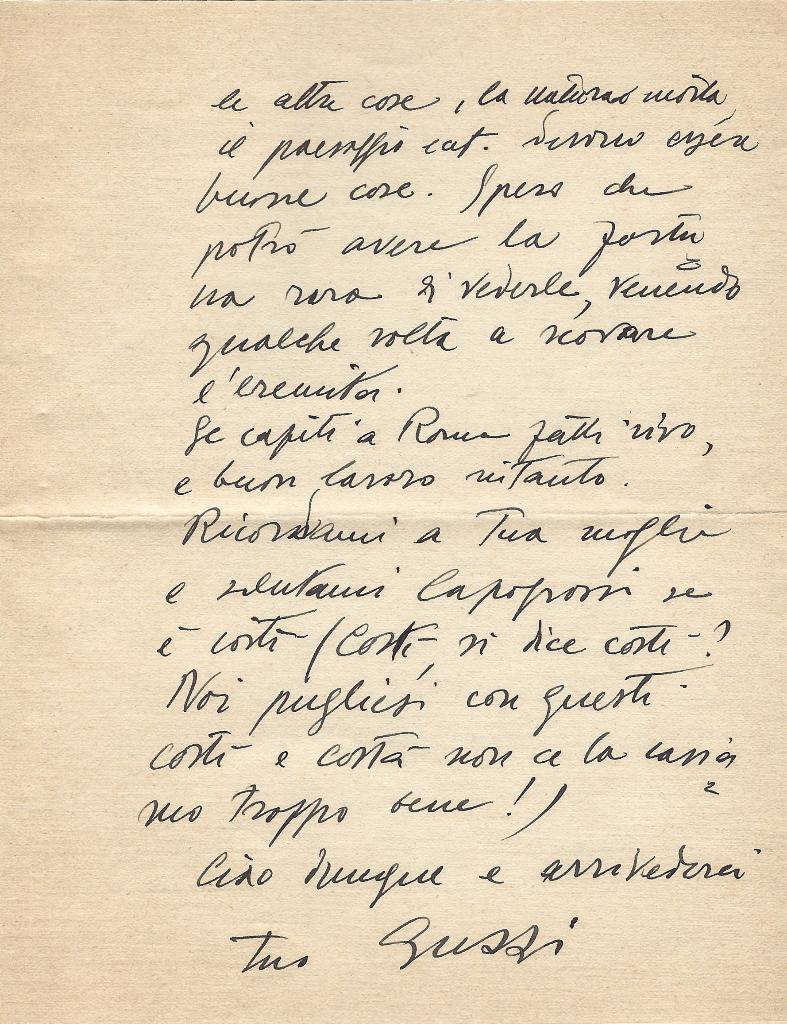 le altre cose, la natura morta,
il paesaggio ect. devono essere
buone cose. Spero che
potrò avere la fortu
na rara di vederle, venendo
qualche volta a scovare
l'eremita.
Se capiti a Roma fatti vivo,
e buon lavoro intanto.
Ricordami a Tua moglie
e salutami Capogrossi se
è costì (Costì, si dice costì?
Noi pugliesi con questi
costì e costà non ce la cavia
mo troppo bene!)
Ciao dunque e arrivederci
tuo